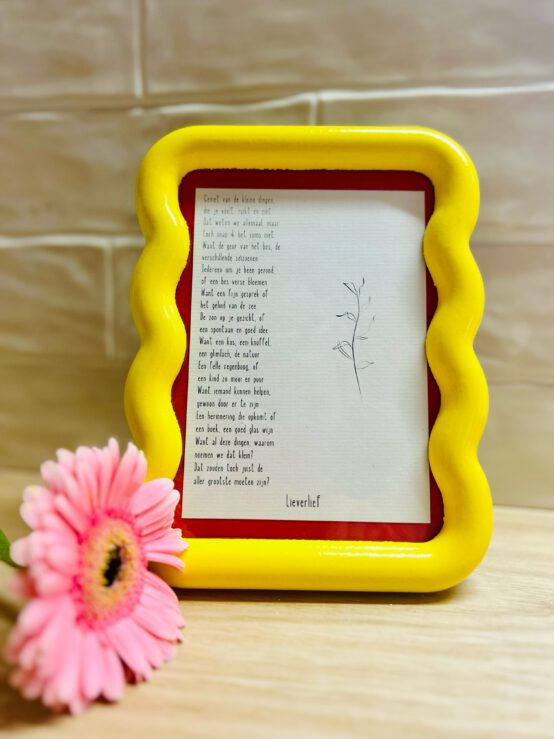 Geniet van de kleine dingen,
die je voelt, ruikt en ziet
Dat weten we allemaal, maar
toch snap ik het soms niet
Want de geur van het bos, de
verschillende seizoenen
Iedereen om je heen gezond,
of een bos verse bloemen
Want een fijn gesprek of
het geluid van de zee
De zon op je gezicht, of
een spontaan en goed idee
Want een kus, een knuffel,
een glimlach, de natuur
Een felle regenboog, of
een kind zo mooi en puur
Want iemand kunnen helpen,
gewoon door er te zijn
Een herinnering die opkomt of
een boek, een goed glas wijn
Want al deze dingen, waarom
noemen we dat klein?
Dat zouden toch juist de
aller grootste moeten zijn?
Lieverlief